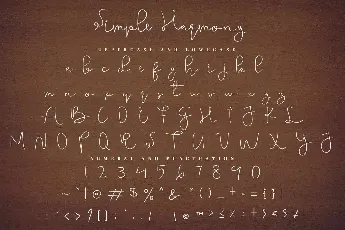 Simple Harmony
UPPERCASE AND LOWERCASE
a b c d e f g h i j k l
m n o p q r s t u v w x y z
A B C D E F G H I J K L
M N O P Q R S T U V W X Y Z
NUMERAL AND PUNCTUATION
1 2 3 4 5 6 7 8 9 0
~ ! @ # $ % ^ & * ( ) _ + = { }
< > ? [ ]